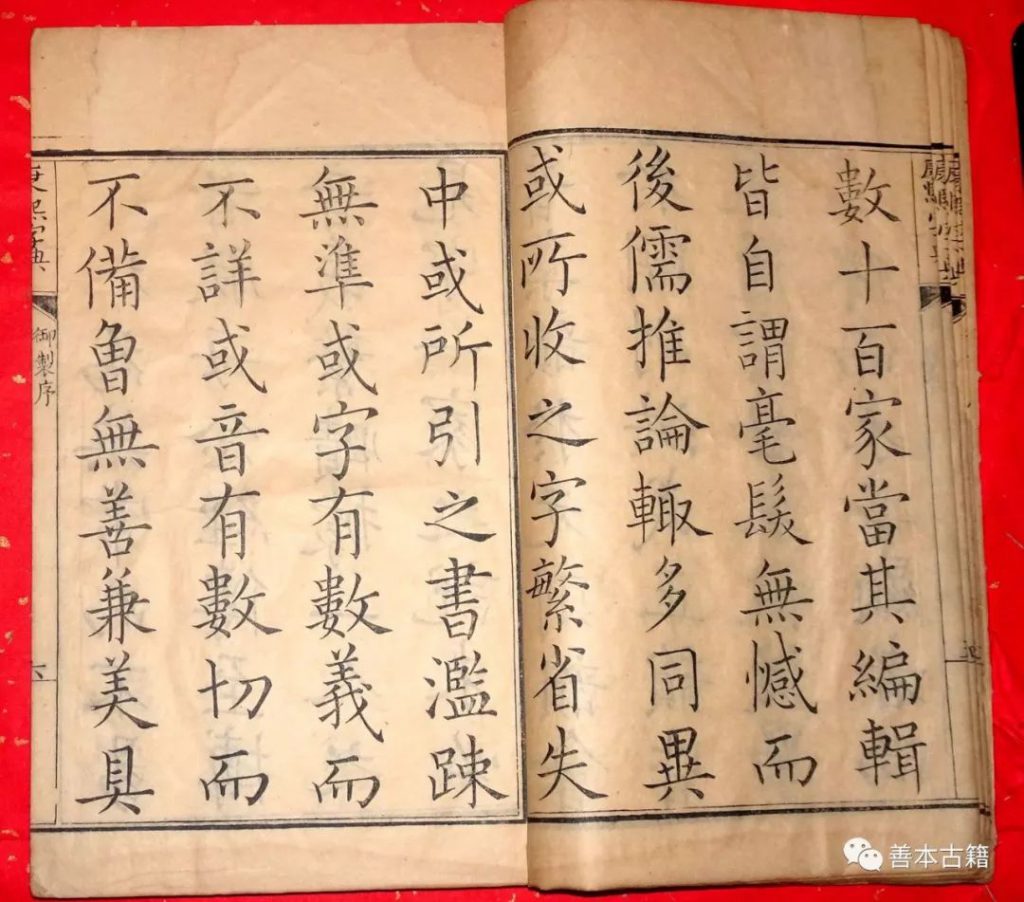 數十百家當其編輯
皆自謂毫髮無憾而
後儒推論輙多同異
或所收之字繁省失
中或所引之書濫疎
無準或字有數義而
不詳或音有數切而
不備曾無善兼美具
康熙字典
御製序
六
善本古籍